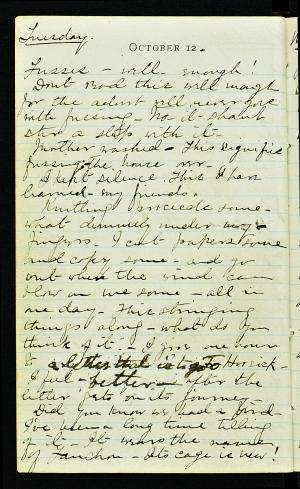 Tuesday.
October 12.
Fusses - well - enough!
Don't read this will
for the will never
with fussing - No it shant
stir a step with it -
Mother washed - This signifies
fussing the house over.
I kept silence. This I have
learned - my friends.
Knitting proceeds some-
what dimunely under my
fingers. I cut papers some
and copy some - and go
out when the wind can
blow on me some - all in
one day - This stringing
things along - what do you
think of it - I give one hour
to a letter that is to go to Hoosick -
I feel - better - after the
letter gets on its journey -
Did you know we had a bird -
I've been a long time telling
of it - It wears the name
of Fanchon - Its cage is new!